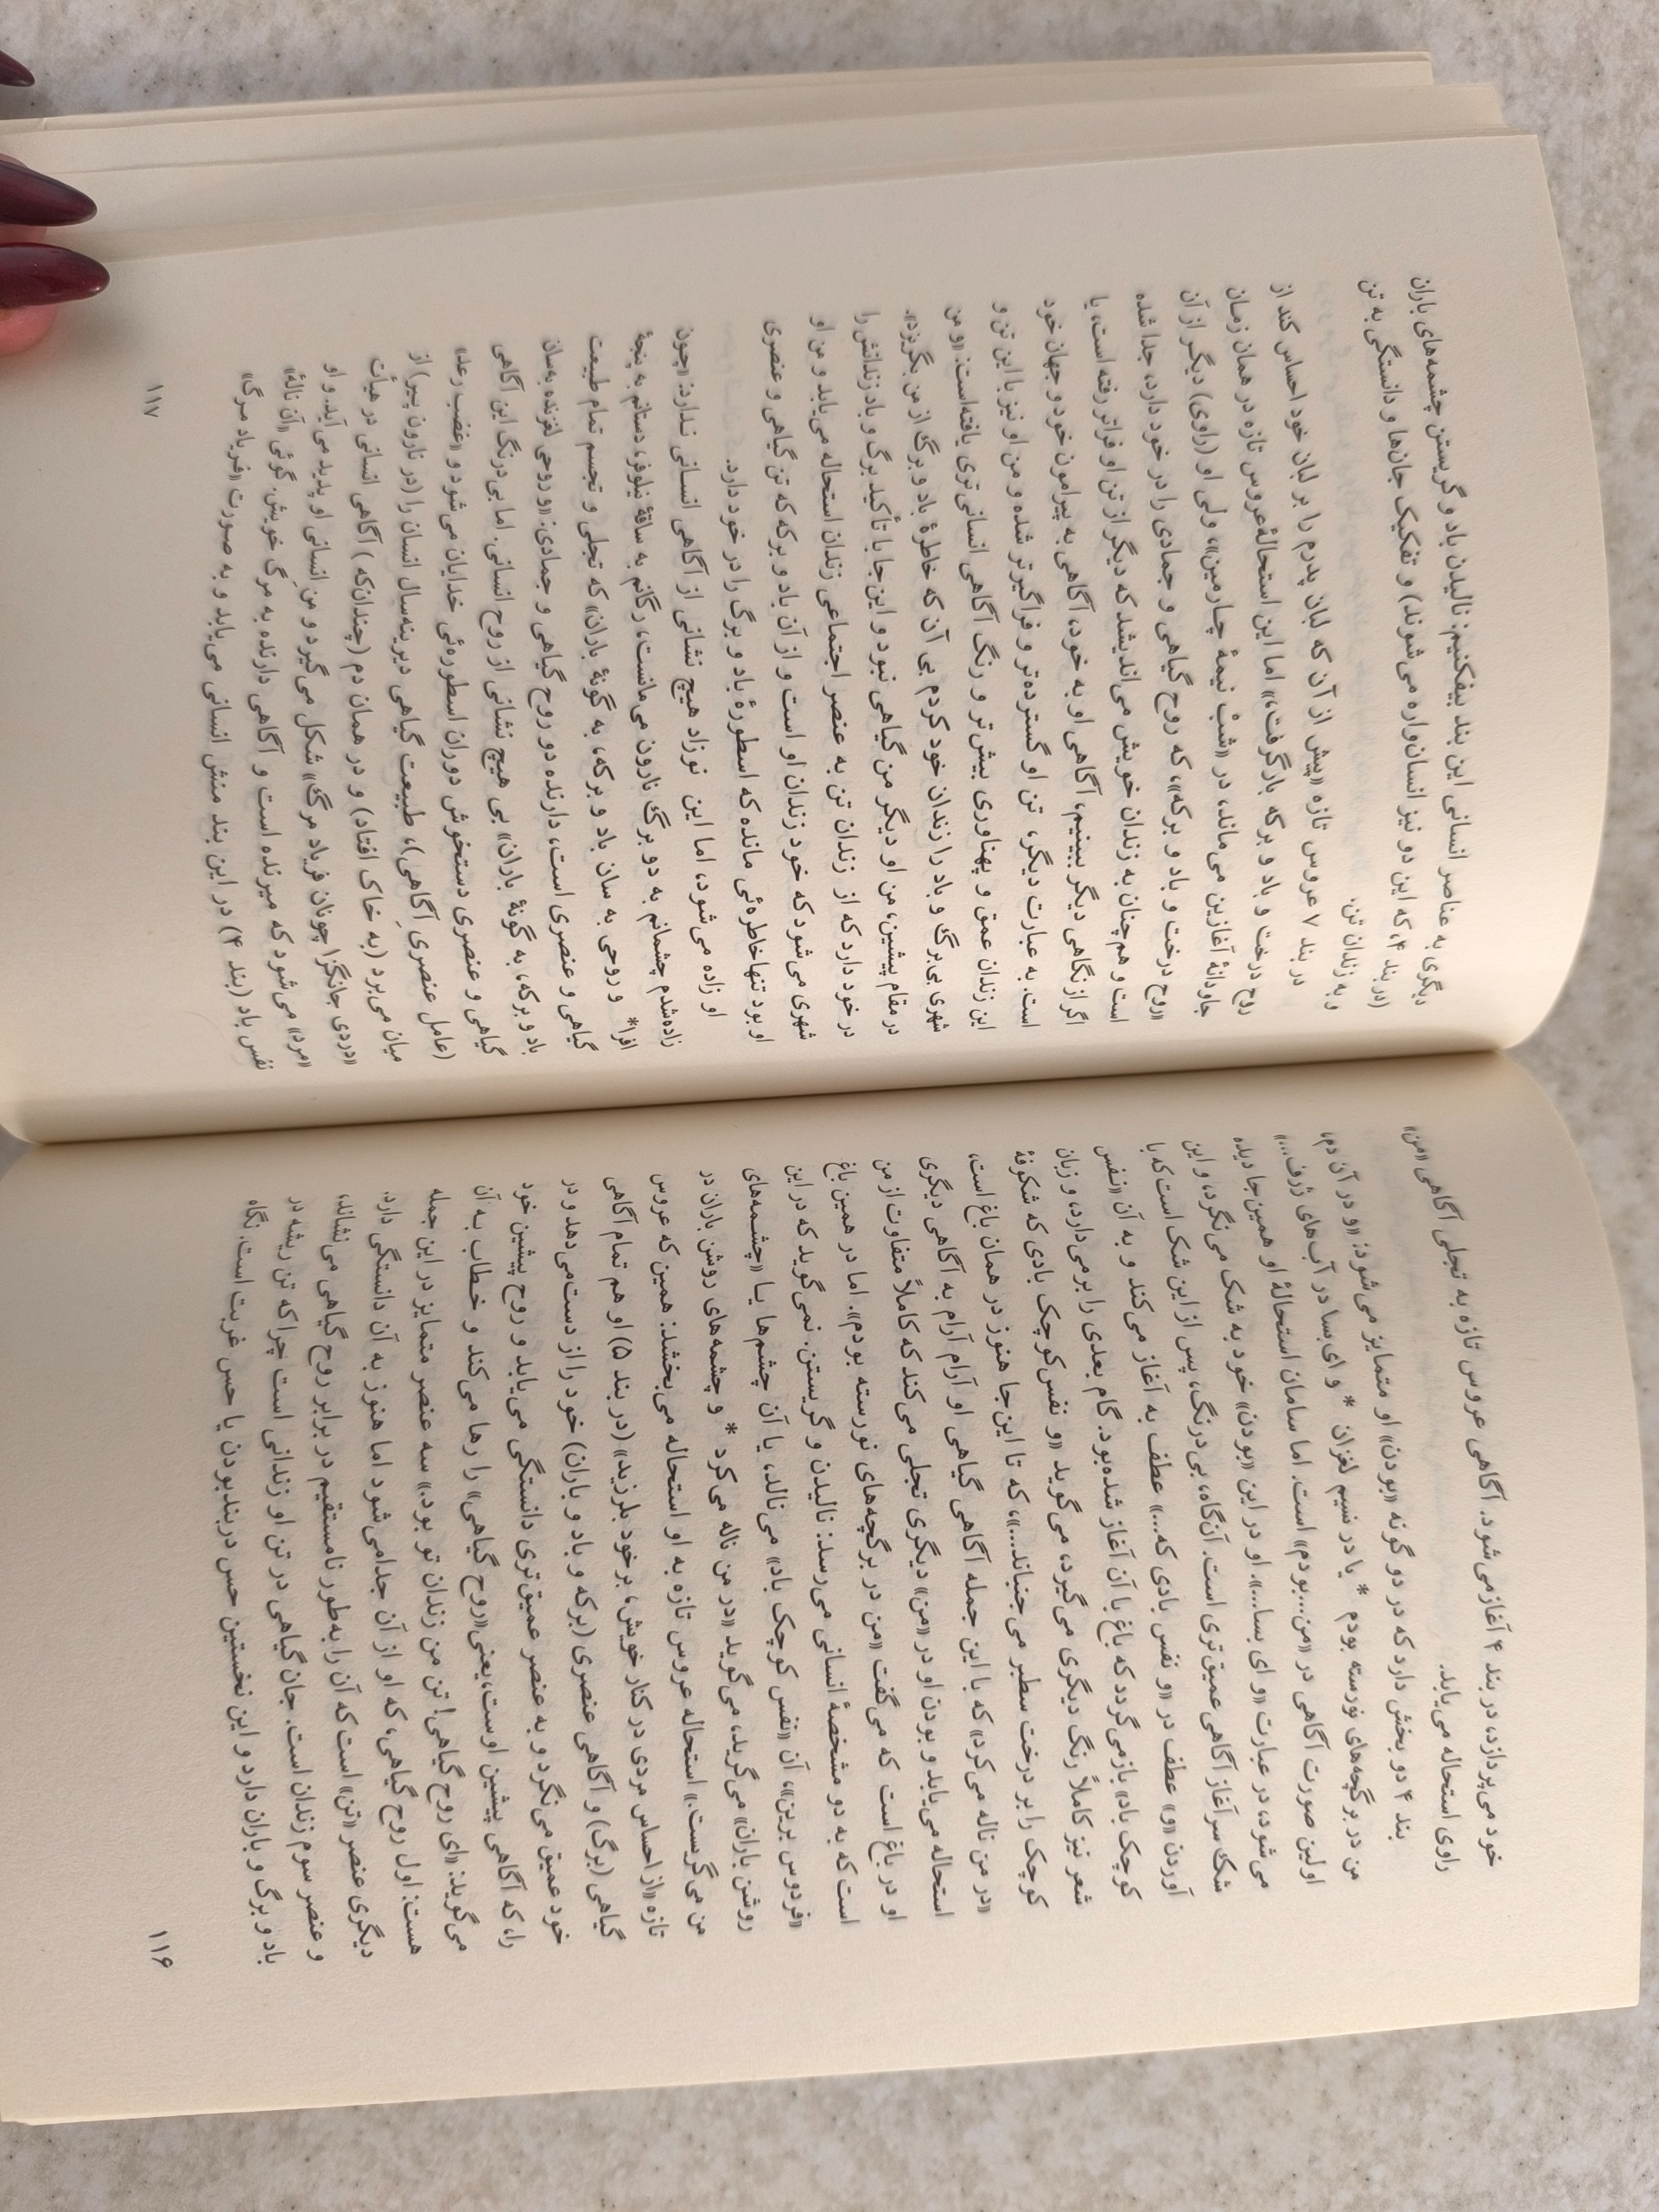 خود می‌پردازد، در بند ۴ آغاز می‌شود. آگاهی عروس تازه به تجلی آگاهی «من»
راوی استحاله می‌یابد.
بند ۴ دو بخش دارد که در دو گونه «بودن» او متمایز می‌شود: «و در آن دم،
من در برگچه‌های نورسته بودم * یا در نسیم لغزان * و ای بسا در آب‌های ژرف...»
اولین صورت آگاهی در «من...بودم» است. اما سامان استحالهٔ او همین‌جا دیده
می‌شود، در عبارت «و ای بسا...». او در این «بودن» خود به شک می‌نگرد، و این
شک سرآغاز آگاهی عمیق‌تری است. آنگاه، بی‌درنگ، پس از این شک است که با
آوردن «و» عطف در «و نفس بادی که...» عطف به آغاز می‌کند و به آن «نفس
کوچک باد» بازمی‌گردد که باغ با آن آغاز شده بود. گام بعدی را برمی‌دارد، و زبان
شعر نیز کاملاً رنگ دیگری می‌گیرد، می‌گوید «و نفس کوچک بادی که شکوفهٔ
کوچک را بر درخت سطبر می‌جنباند...»، که تا این‌جا هنوز در همان باغ است،
«در من ناله می‌کرد» که با این جمله آگاهی گیاهی او آرام آرام به آگاهی دیگری
استحاله می‌یابد و بودن او در «من» دیگری تجلی می‌کند که کاملاً متفاوت از من
او در باغ است که می‌گفت «من در برگچه‌های نورسته بودم». اما در همین باغ
است که به دو مشخصهٔ انسانی می‌رسد: نالیدن و گریستن. نمی‌گوید که در این
«فردوس برین»، آن «نفس کوچک باد» می‌نالد، یا آن چشم‌ها یا «چشمه‌های
روشن باران» می‌گرید، می‌گوید «در من ناله می‌کرد * و چشمه‌های روشن باران در
من می‌گریست.» استحاله عروس تازه به او استحاله می‌بخشد: همین که عروس
تازه «از احساس مردی در کنار خویش، بر خود بلرزید» (در بند ۵) او هم تمام آگاهی
گیاهی (برگ) و آگاهی عنصری (برکه و باد و باران) خود را از دست می‌دهد و در
خود عمیق می‌نگرد و به عنصر عمیق‌تری دانستگی می‌یابد و روح پیشین خود
را، که آگاهی پیشین اوست، یعنی «روح گیاهی» را رها می‌کند و خطاب به آن
می‌گوید: «ای روح گیاهی! تن من زندان تو بود.» سه عنصر متمایز در این جمله
هست: اول روح گیاهی، که او از آن جدا می‌شود اما هنوز به آن دانستگی دارد.
دیگری عنصر «تن» است که آن را به‌طور نامستقیم در برابر روح گیاهی می‌نشاند،
و عنصر سوم زندان است. جان گیاهی در تن او زندانی است چرا که تن ریشه در
باد و برگ و باران دارد و این نخستین حس دربندبودن یا حس غربت است. نگاه
۱۱۶
دیگری به عناصر انسانی این بند بیفکنیم: نالیدن باد و گریستن چشمه‌های باران
(در بند ۴، که این دو نیز انسان‌واره می‌شوند) و تفکیک جان‌ها و دانستگی به تن
و به زندان تن.
در بند ۷ عروس تازه «پیش از آن که لبان پدرم را بر لبان خود احساس کند از
روح درخت و باد و برکه بار گرفت»، اما این استحالهٔ عروس تازه در همان زمان
جاودانهٔ آغازین می‌ماند، در «شبْ نیمهٔ چارمین»، ولی او (راوی) دیگر از آن
«روح درخت و باد و برکه»، که روح گیاهی و جمادی را در خود دارد، جدا شده
است و هم‌چنان به زندان خویش می‌اندیشد که دیگر از تن او فراتر رفته است، یا
اگر از نگاهی دیگر ببینیم، آگاهی او به خود، آگاهی به پیرامون خود و جهان خود
است. به عبارت دیگر، تن او گسترده‌تر و فراگیرتر شده و من او نیز با این تن و
این زندان عمق و پهناوری بیش‌تر و رنگ آگاهی انسانی‌تری یافته‌است: «و من
شهری بی‌برگ و باد را زندان خود کردم بی آن که خاطرهٔ باد و برگ از من بگریزد».
در مقام پیشین، من او دیگر من گیاهی نبود و این‌جا با تأکید برگ و باد زندانش را
در خود دارد که از زندان تن به عنصر اجتماعی زندان استحاله می‌یابد و من او
شهری می‌شود که خود زندان او است و از آن باد و برکه که تن گیاهی و عنصری
او بود تنها خاطره‌ئی مانده که اسطورهٔ باد و برگ را در خود دارد.
او زاده می‌شود، اما این نوزاد هیچ نشانی از آگاهی انسانی ندارد: «چون
زاده‌شدم چشمانم به دو برگ نارون می‌مانست، رگانم به ساقهٔ نیلوفر، دستانم به پنجهٔ
افرا* و روحی به سان باد و برکه، به گونهٔ باران» که تجلی و تجسم تمام طبیعت
گیاهی و عنصری است، دارنده دو روح گیاهی و جمادی: «و روحی لغزنده به‌سان
باد و برکه، به گونهٔ باران» بی هیچ نشانی از روح انسانی. اما بی‌درنگ این آگاهی
گیاهی و عنصری دستخوش دوران اسطوره‌ئی خدایان می‌شود و «غضب رعد»
(عامل عنصریِ آگاهی)، طبیعت گیاهی دیرینه‌سال انسان را (در نارون پیر) از
میان می‌برد (به خاک افتاد) و در همان دم (چندان‌که) آگاهی انسانی در هیأت
«دردی جانگزا چونان فریاد مرگ» شکل می‌گیرد و منِ انسانی او پدید می‌آید. و او
«مرد» می‌شود که میرنده است و آگاهی دارنده به مرگ خویش. گوئی «آن نالهٔ»
نفس باد (بند ۴) در این بند منش انسانی می‌یابد و به صورت «فریاد مرگ»
۱۱۷